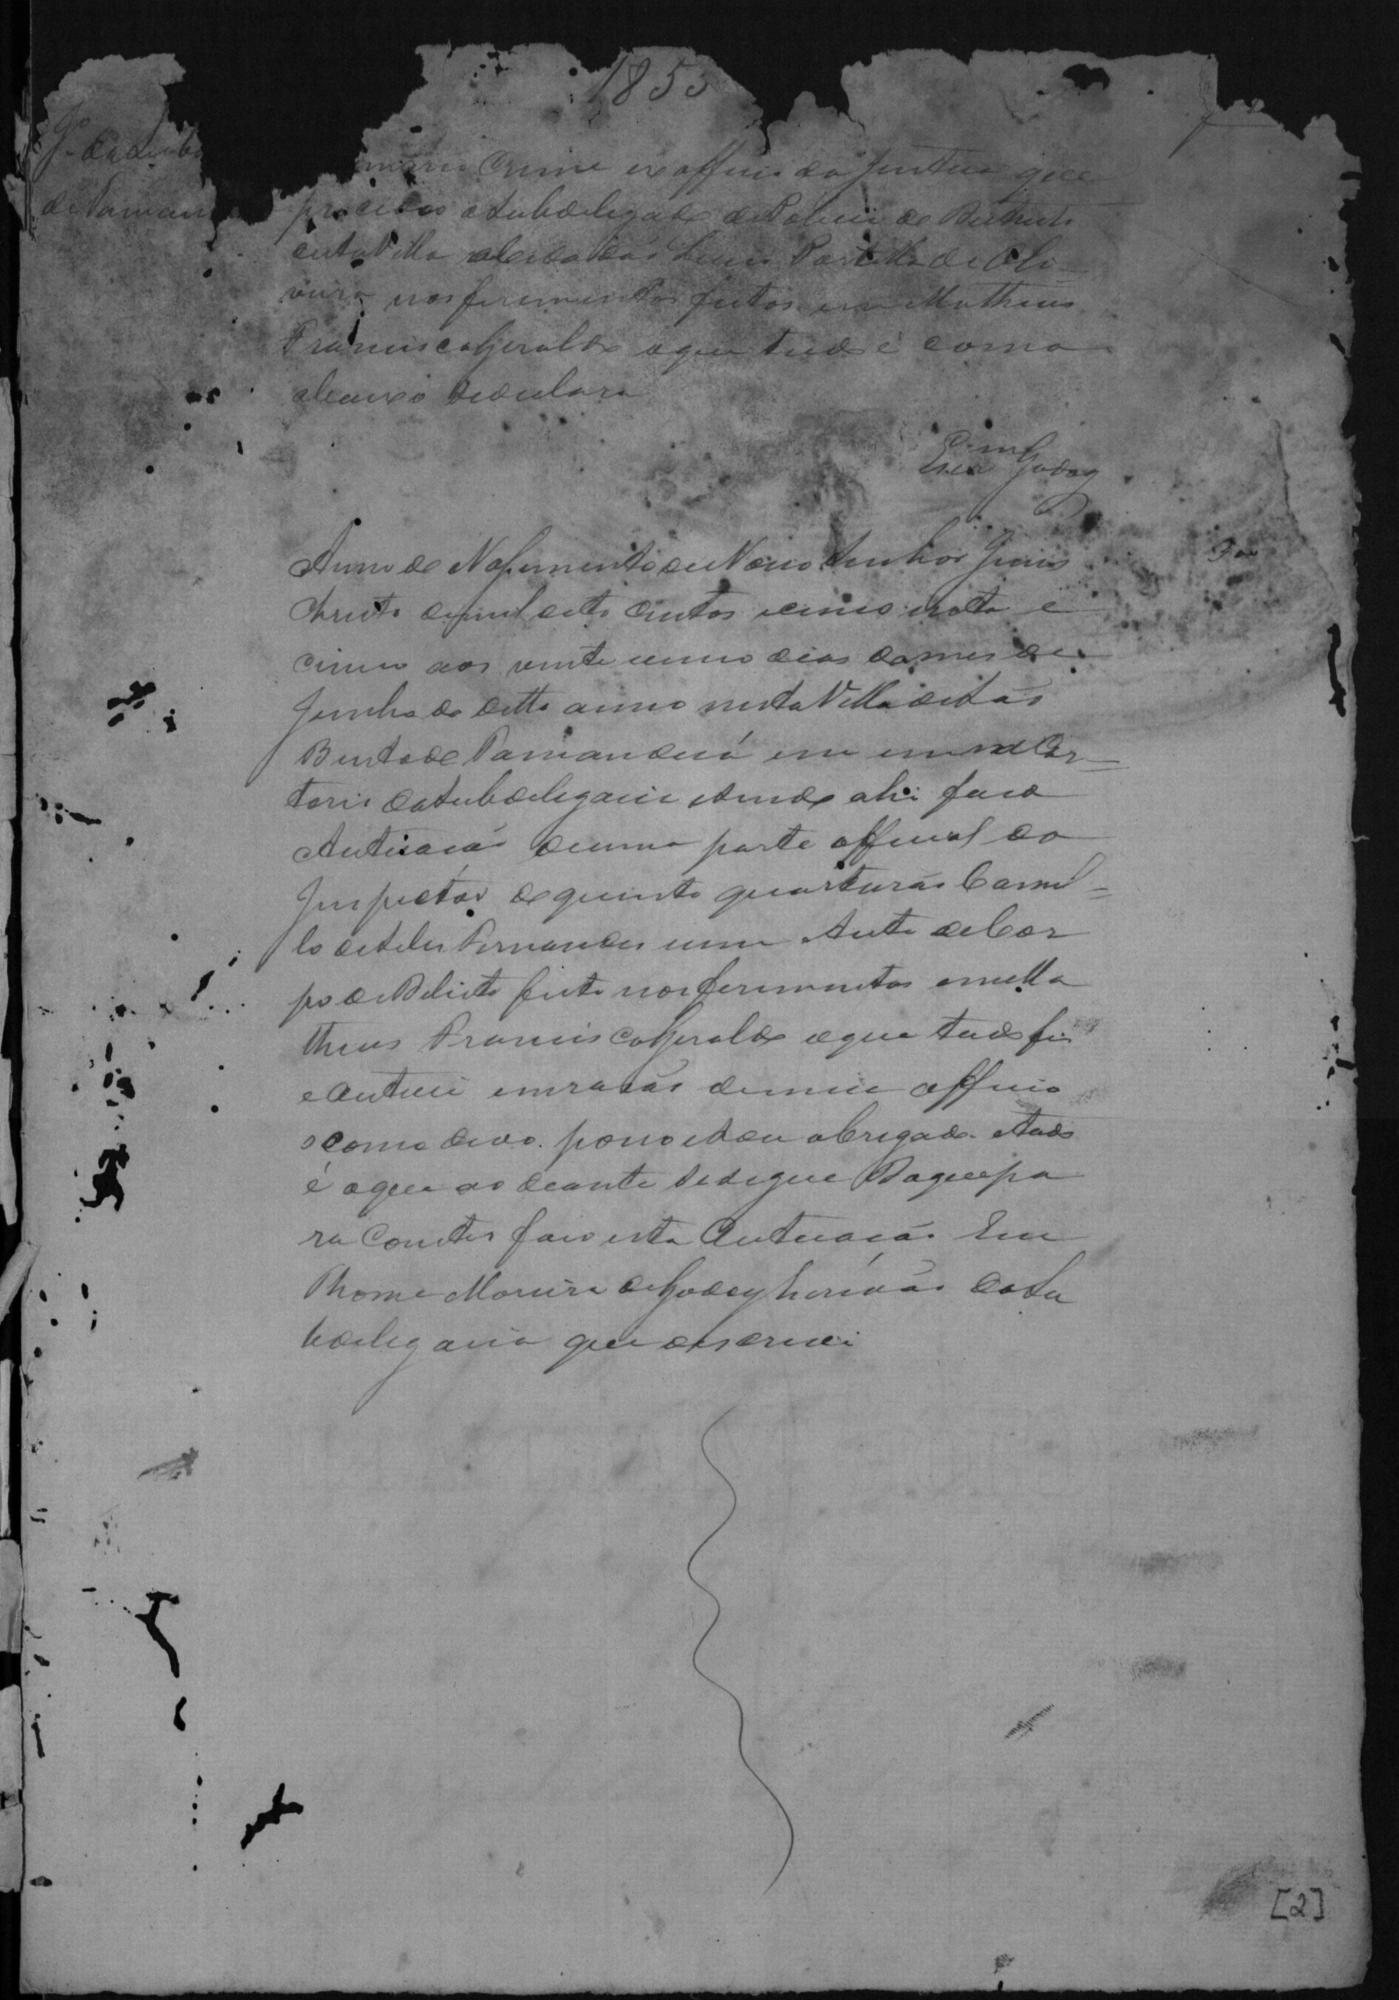 1855
J. da Sub
de Taman
Crime ex officio da Justica que
procedeo o Subdelegado de Policia de Destricto
desta Villa Luiz Portella de Oli-
veira nos ferimentos feitos em Matheus
Francisco Geraldo o que tudo é como
abaixo se declara
Escr.am Godoy
Anno do Nascimento de Nosso Senhor Jezus
Christo de mil oito centos e cincoenta e
cinco aos vinte e cinco dias do mes de
Junho do ditto anno nesta Villa de Sáo
Bento de Tamanduá em meu Car-
torio da Subdelegacia e sendo ahi faco
Autuacáo de uma parte official do
Inspector do quinto quarteiráo Camil-
lo de Sales Fernandes e um Auto de Cor
po de Delicto feito nos ferimentos em Ma
theus Francisco Geraldo o que tudo fis
e autuei em razáo de meu officio
e como devo. posso e sou obrigado e tudo
é o que ao deante se segue Do que pa
ra Constar faco esta Autuacáo Eu
Thome Moreira de Godoy Escriváo da Su
bdelegacia que o escrevi
[2]